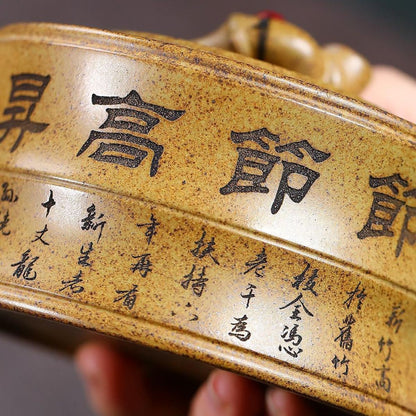 節節高昇
新竹高
於舊竹
枝全憑
老干為
扶持
年再有
新生者
十丈龍
孫